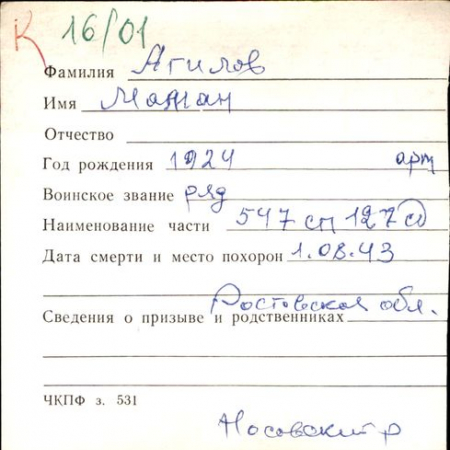 К 16/01
Фамилия Агилов
Имя Матан
Отчество
Год рождения 1924 арт
Воинское звание ряд
Наименование части 547 сп 127 сд
Дата смерти и место похорон 1.08.43
Ростовская обл.
Сведения о призыве и родственниках
ЧКПФ з. 531
Носовский р